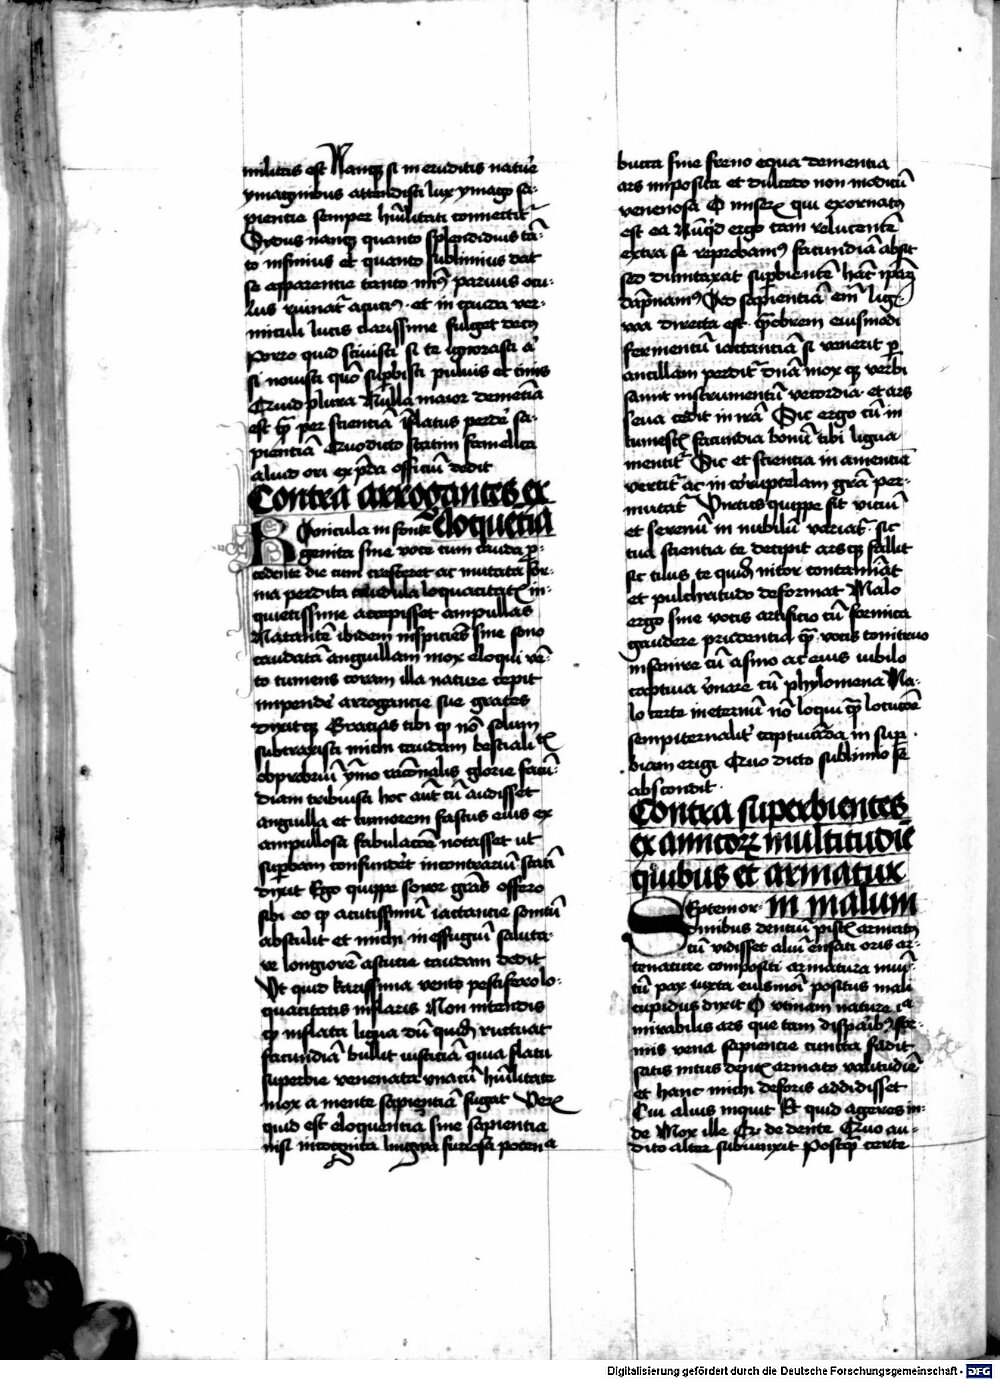 militas est Nanq si in eruditis nature
ymaginibus attendisti lux ymago sa-
pientie semper hu̅ilitati connectit̄
Sydus nanq quanto splendidius tā-
to infimius et quanto sublimius dat
se apparentie tanto paruus ocu-
lus · et in queru ver-
miculi lucis clarissime fulget
Porro quid sciuisti si te ignorasti
si nouisti quō supbisti puluis et cinis
Quid plura Nulla maior demētia
est q̄ per scientiā īflatus perde sa-
pientiā Quo dicto statim famelica
aluid ori ex officiū dedit
Contra arrogantes ex
eloquētia
Ronicula in fonte
genita sine voce cum cauda p-
cedente die cum cresceret ac mutata for-
ma perdita caudula loquacitat in-
quietissime accepisset ampullas
Natantē ibidem inspiciēs sine sono
caudatā anguillam mox eloqui vē-
to tumens coram illa nature cepit
impende arrogancie sue grates
dixitq Gracias tibi q nō solum
subtraxisti michi caudam bestiali
obprobriū ymo racōnalis glorie facū-
diam tribuisti hoc aūt cū audisset
anguilla et tumorem fastus eius ex
ampullosa fabulacōe notasset ut
supbam confundet incontrariū statī
dixit Ego quippe soror grās offero
sibi eo q acutissimū iactantie sonitū
abstulit et michi in effugiū saluta-
re longiorē astucie caudam dedit
Ut quid karissima vento pestifero lo-
quacitatis inflaris Non intendis
q inflata ligua dū quid ructuat
facundiā bullit iusticiā quia flatu
superbie venenata vnacū hūilitate
mox a mente sapientiā fugat Vex
quid est eloquentia sine sapientia
nisi incognita lingwa furiosa potencia
bucca sine freno equa dementia
ars imposita et dulcedo non modicū
venenosa O miser qui exornatq
est ea Nūqd ergo tam relucentē
extra se reprobam facundiā absit
sed dumtaxat supbientē hāc
dāpnam Deo sapientiā em lig-
wa directa est · Quobrem eiusmodi
fermentū iactantiā si venerit p
ancillam perdit dnā mox q verbi
sanit instrumentū vecordia · et ars
seua cedit in irā Sic ergo cū in
tumesc facundia bonū tibi ligua
mentit Sic et scientia in amentiē
vertit ac in coruptelam grā per-
mutat Virtus quippe fit viciū
et serenū in nubilū variat sic
tua scientia te decipit arsq fallit
sic tilus te quid nitor contamīat
et pulchritudo deformat Malo
ergo sine vocis artificio cū formica
gaudere prudentia q̄ vocis tonitruo
insenire cū asino ac eius iubilo
captiua vnare cū phylomena Ma-
lo certe ineternū nō loqui q̄ locucōe
sempiternalit captiuāda in sup-
biam erigi Quo dicto sublimo se
abscondit ·
Contra superbientes
ex amicorꝝ multitudīe
quibus et armatur
in malum
Septem or-
dinibus dentiū pisc armatq
cū vidisset aliū ensati oris ar-
tenature compositi armatura mūi-
tū pax iuxta eiusmoi positus mali
cupidus dixit O vtinam nature
mirabilis ars que tam dispaibq for-
mis vena sapientie cuncta fadit
satis intus dent armato valitudiē
et hanc michi deforis addidisset
Cui alius inquit Et quid ageres in-
de Mox ille Ex de dente Quo au-
dito alter subiunxit Postq̄ certe
Digitalisierung gefördert durch die Deutsche Forschungsgemeinschaft - DFG